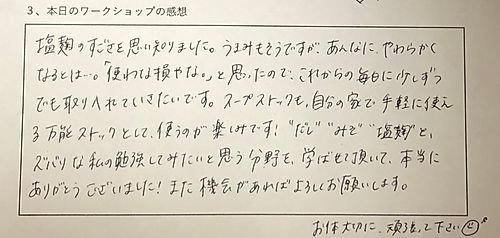 3、本日のワークショップの感想
塩麹のすごさを思い知りました。うまみもそうですが、あんなに、やわらかく
なるとは…。「使わな損やな。」と思ったので、これからの毎日に少しずつ
でも取り入れていきたいです。スープストックも、自分の家で手軽に使え
る万能ストックとして、使うのが楽しみです! "だし" "みそ" "塩麹"と、
ズバリな私の勉強してみたいと思う分野を、学ばせて頂いて、本当に
ありがとうございました! また機会があればよろしくお願いします。
お体大切に、頑張って下さい